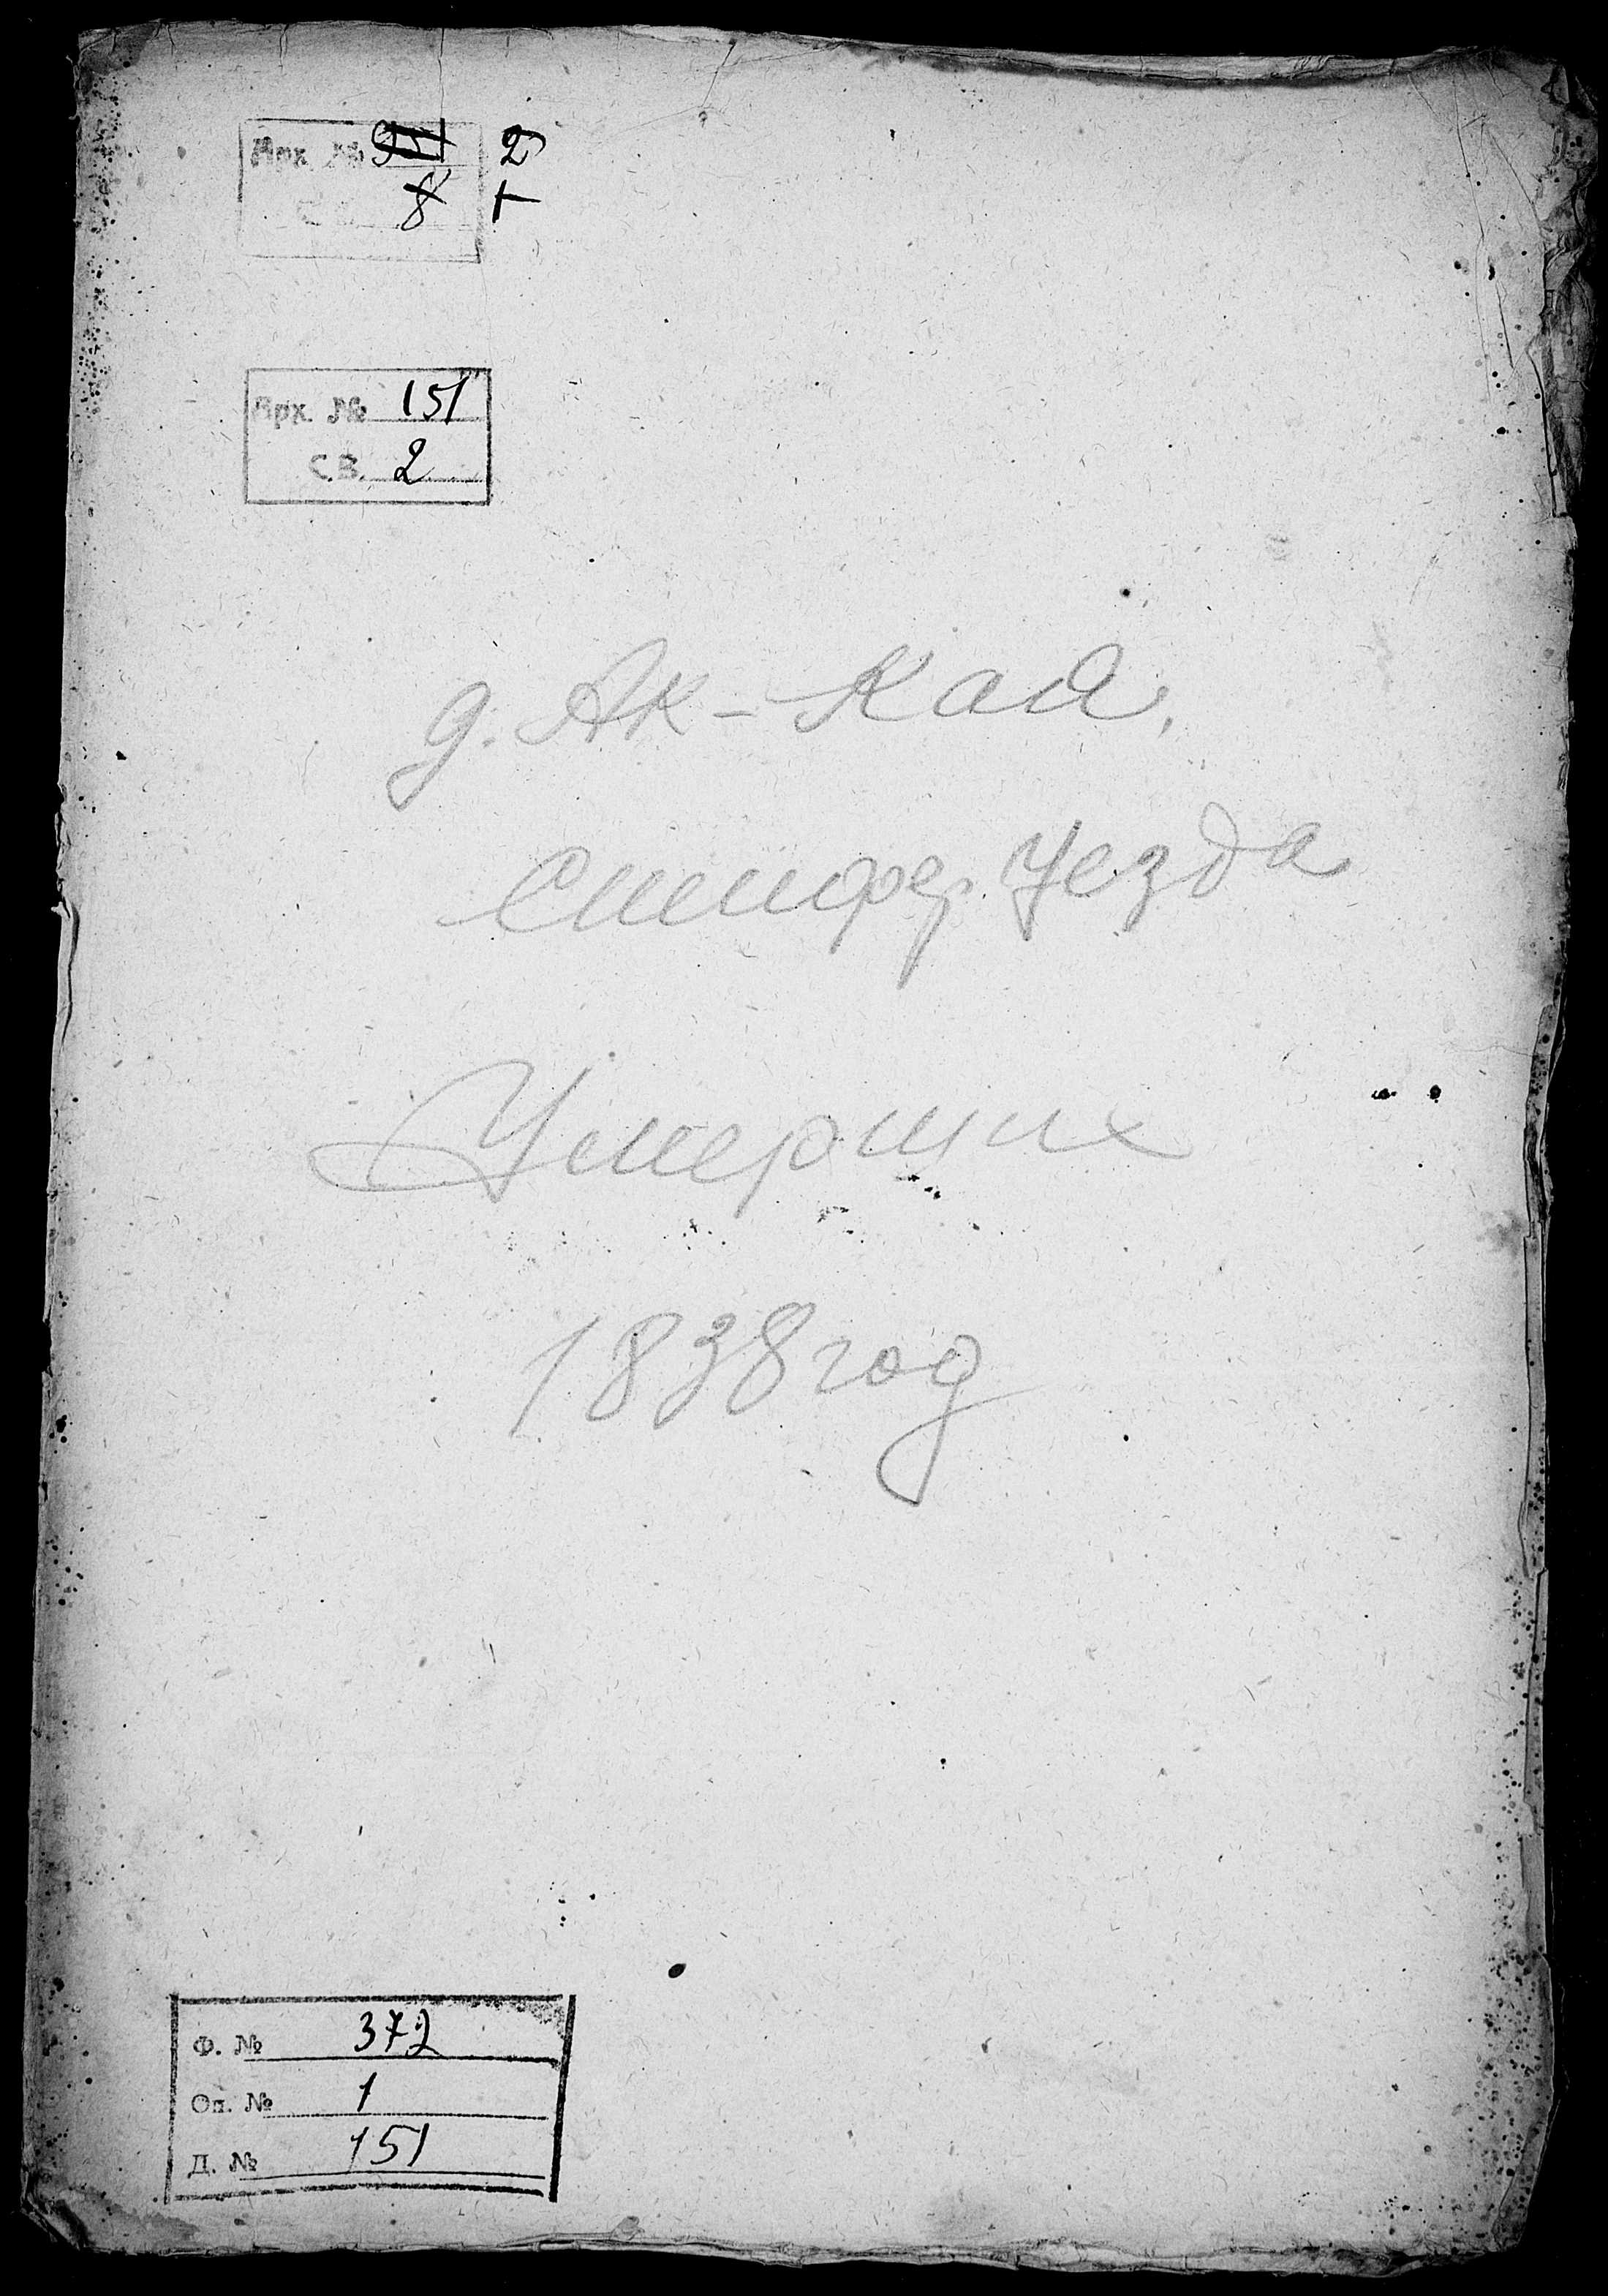 Арх. № 2
8
Арх. № 151
С.В. 2
д. Ак-Кая,
Симфер. Уезда
Умерших
1838 год
Ф. № 372
Оп. № 1
Д. № 151